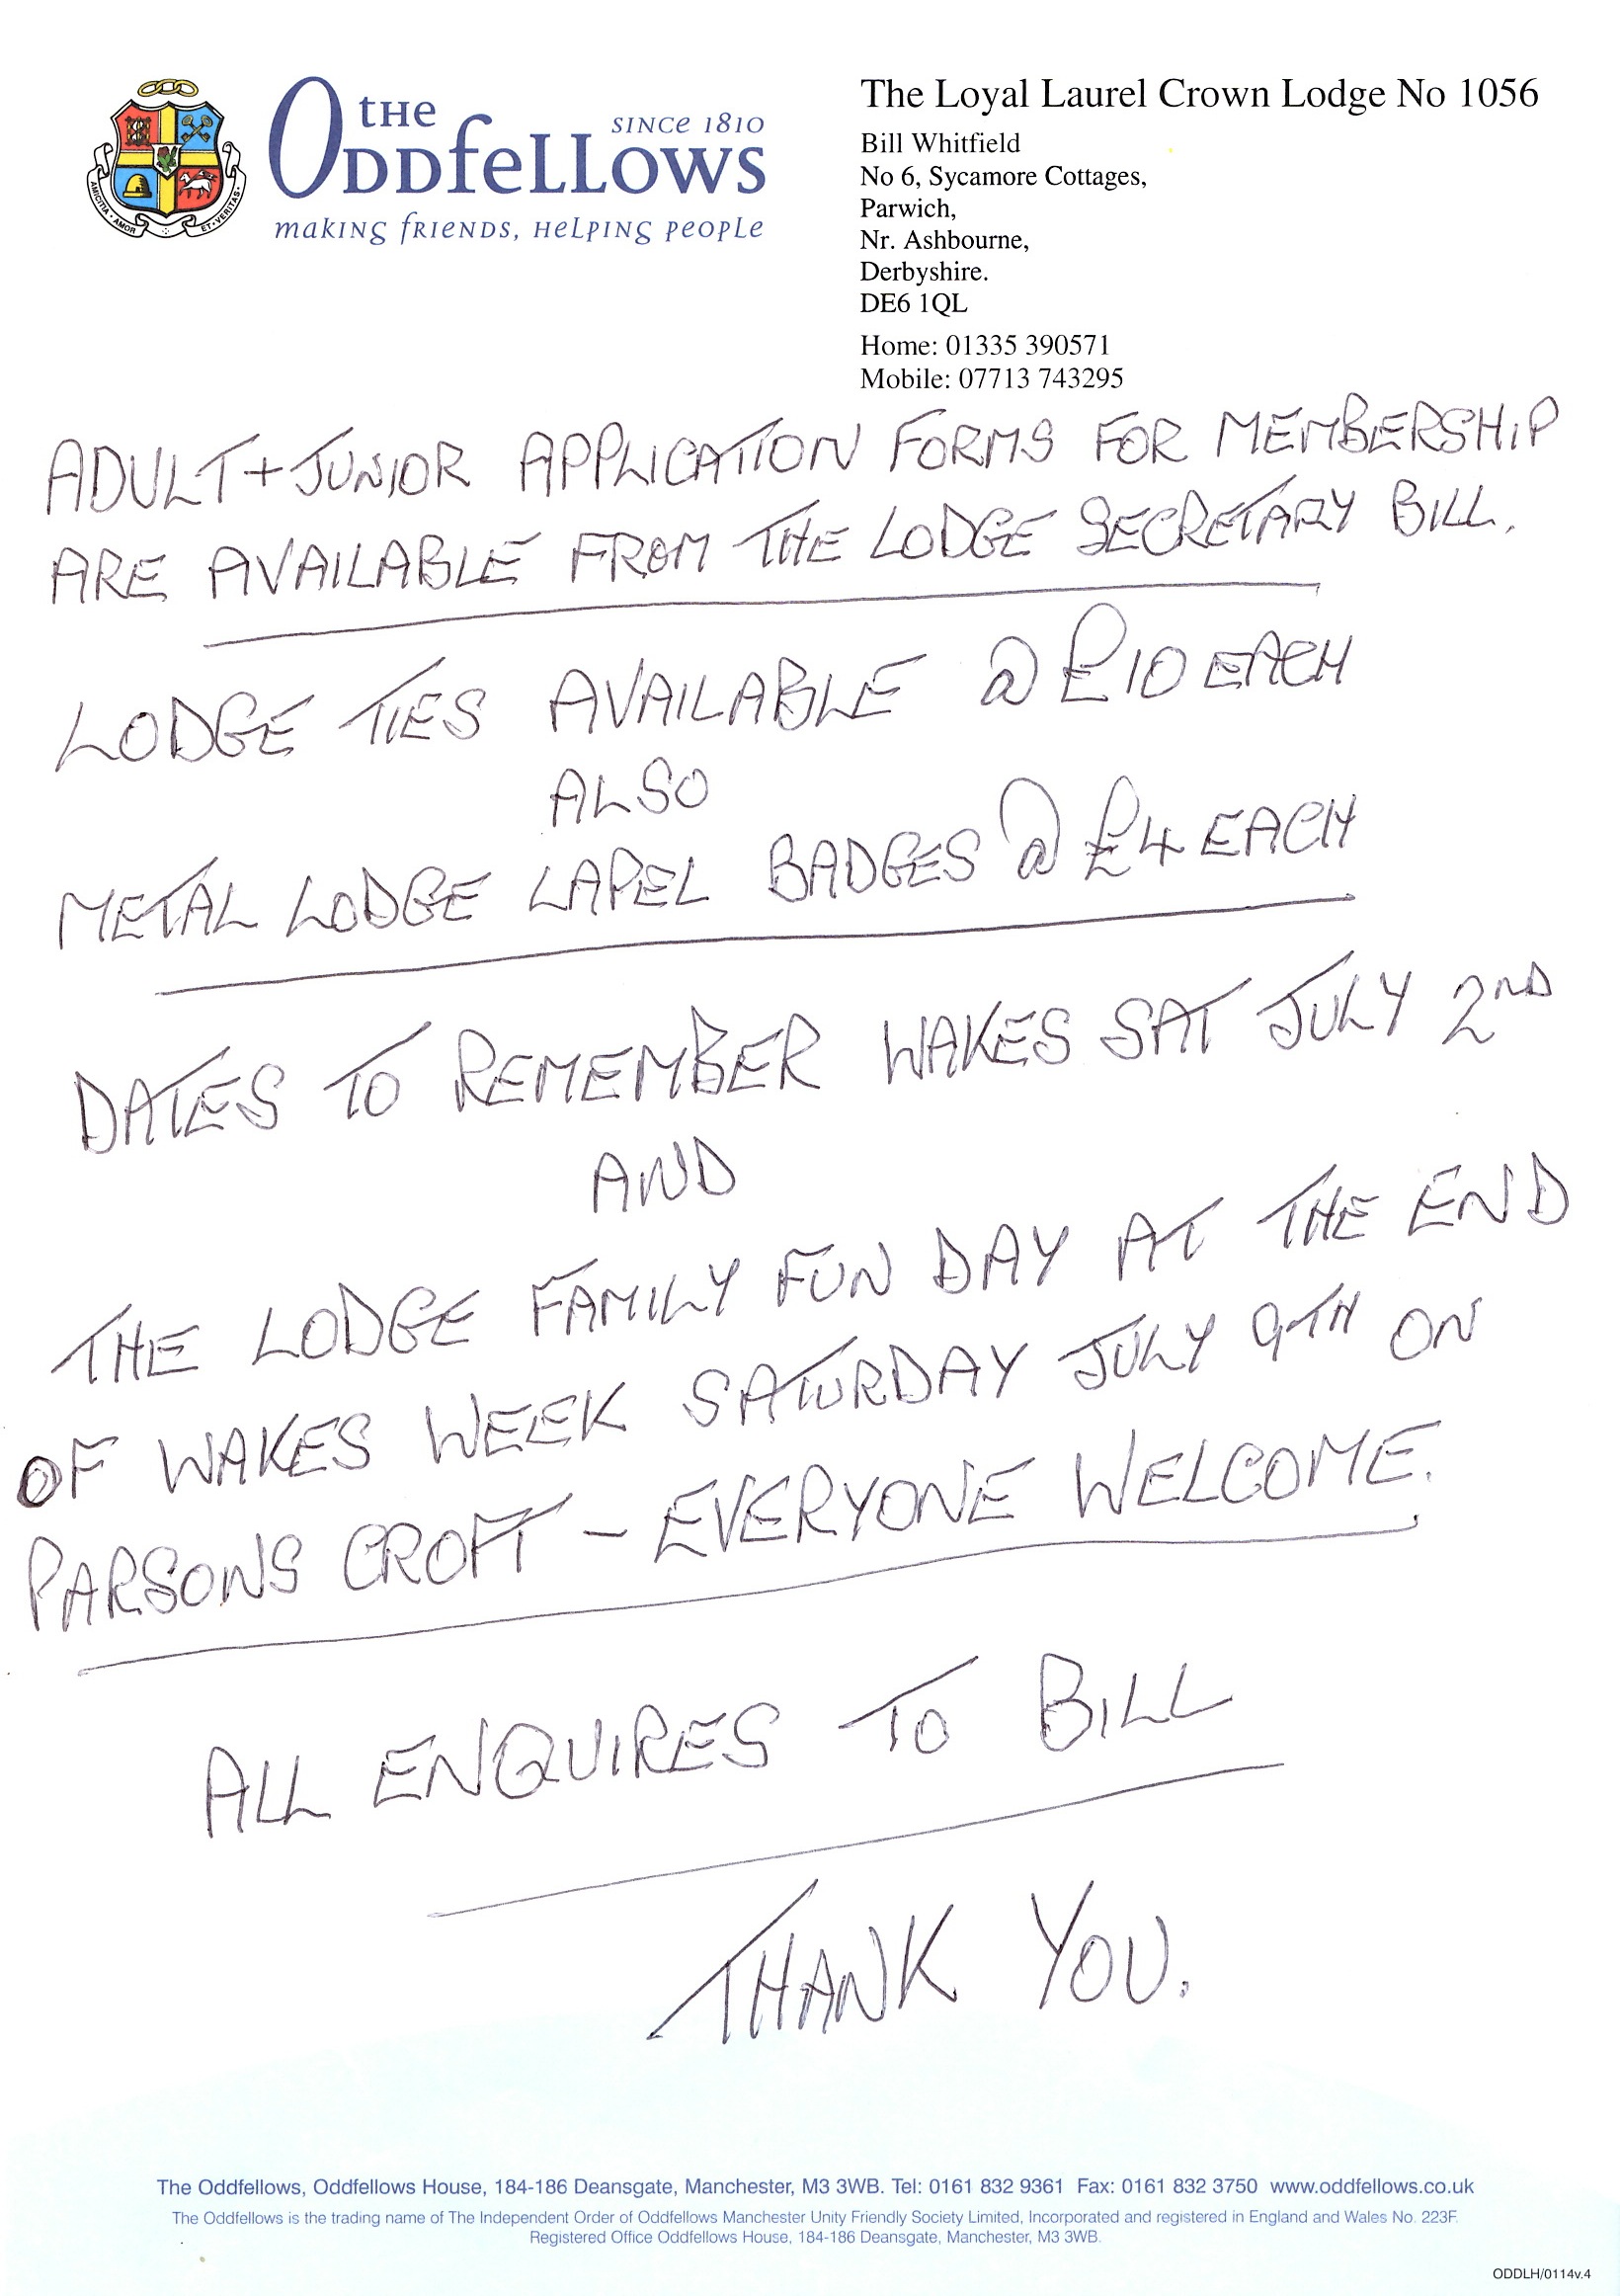 THE
ODDfELLOWS
SINCE 1810
making friends, helping people
AMICITIA · AMOR · ET · VERITAS
The Loyal Laurel Crown Lodge No 1056
Bill Whitfield
No 6, Sycamore Cottages,
Parwich,
Nr. Ashbourne,
Derbyshire.
DE6 1QL
Home: 01335 390571
Mobile: 07713 743295
ADULT + JUNIOR APPLICATION FORMS FOR MEMBERSHIP
ARE AVAILABLE FROM THE LODGE SECRETARY BILL.
LODGE TIES AVAILABLE @ £10 EACH
ALSO
METAL LODGE LAPEL BADGES @ £4 EACH
DATES TO REMEMBER WAKES SAT JULY 2ND
AND
THE LODGE FAMILY FUN DAY AT THE END
OF WAKES WEEK SATURDAY JULY 9TH ON
PARSONS CROFT – EVERYONE WELCOME.
ALL ENQUIRES TO BILL
THANK YOU.
The Oddfellows, Oddfellows House, 184-186 Deansgate, Manchester, M3 3WB. Tel: 0161 832 9361 Fax: 0161 832 3750 www.oddfellows.co.uk
The Oddfellows is the trading name of The Independent Order of Oddfellows Manchester Unity Friendly Society Limited, Incorporated and registered in England and Wales No. 223F.
Registered Office Oddfellows House, 184-186 Deansgate, Manchester, M3 3WB.
ODDLH/0114v.4